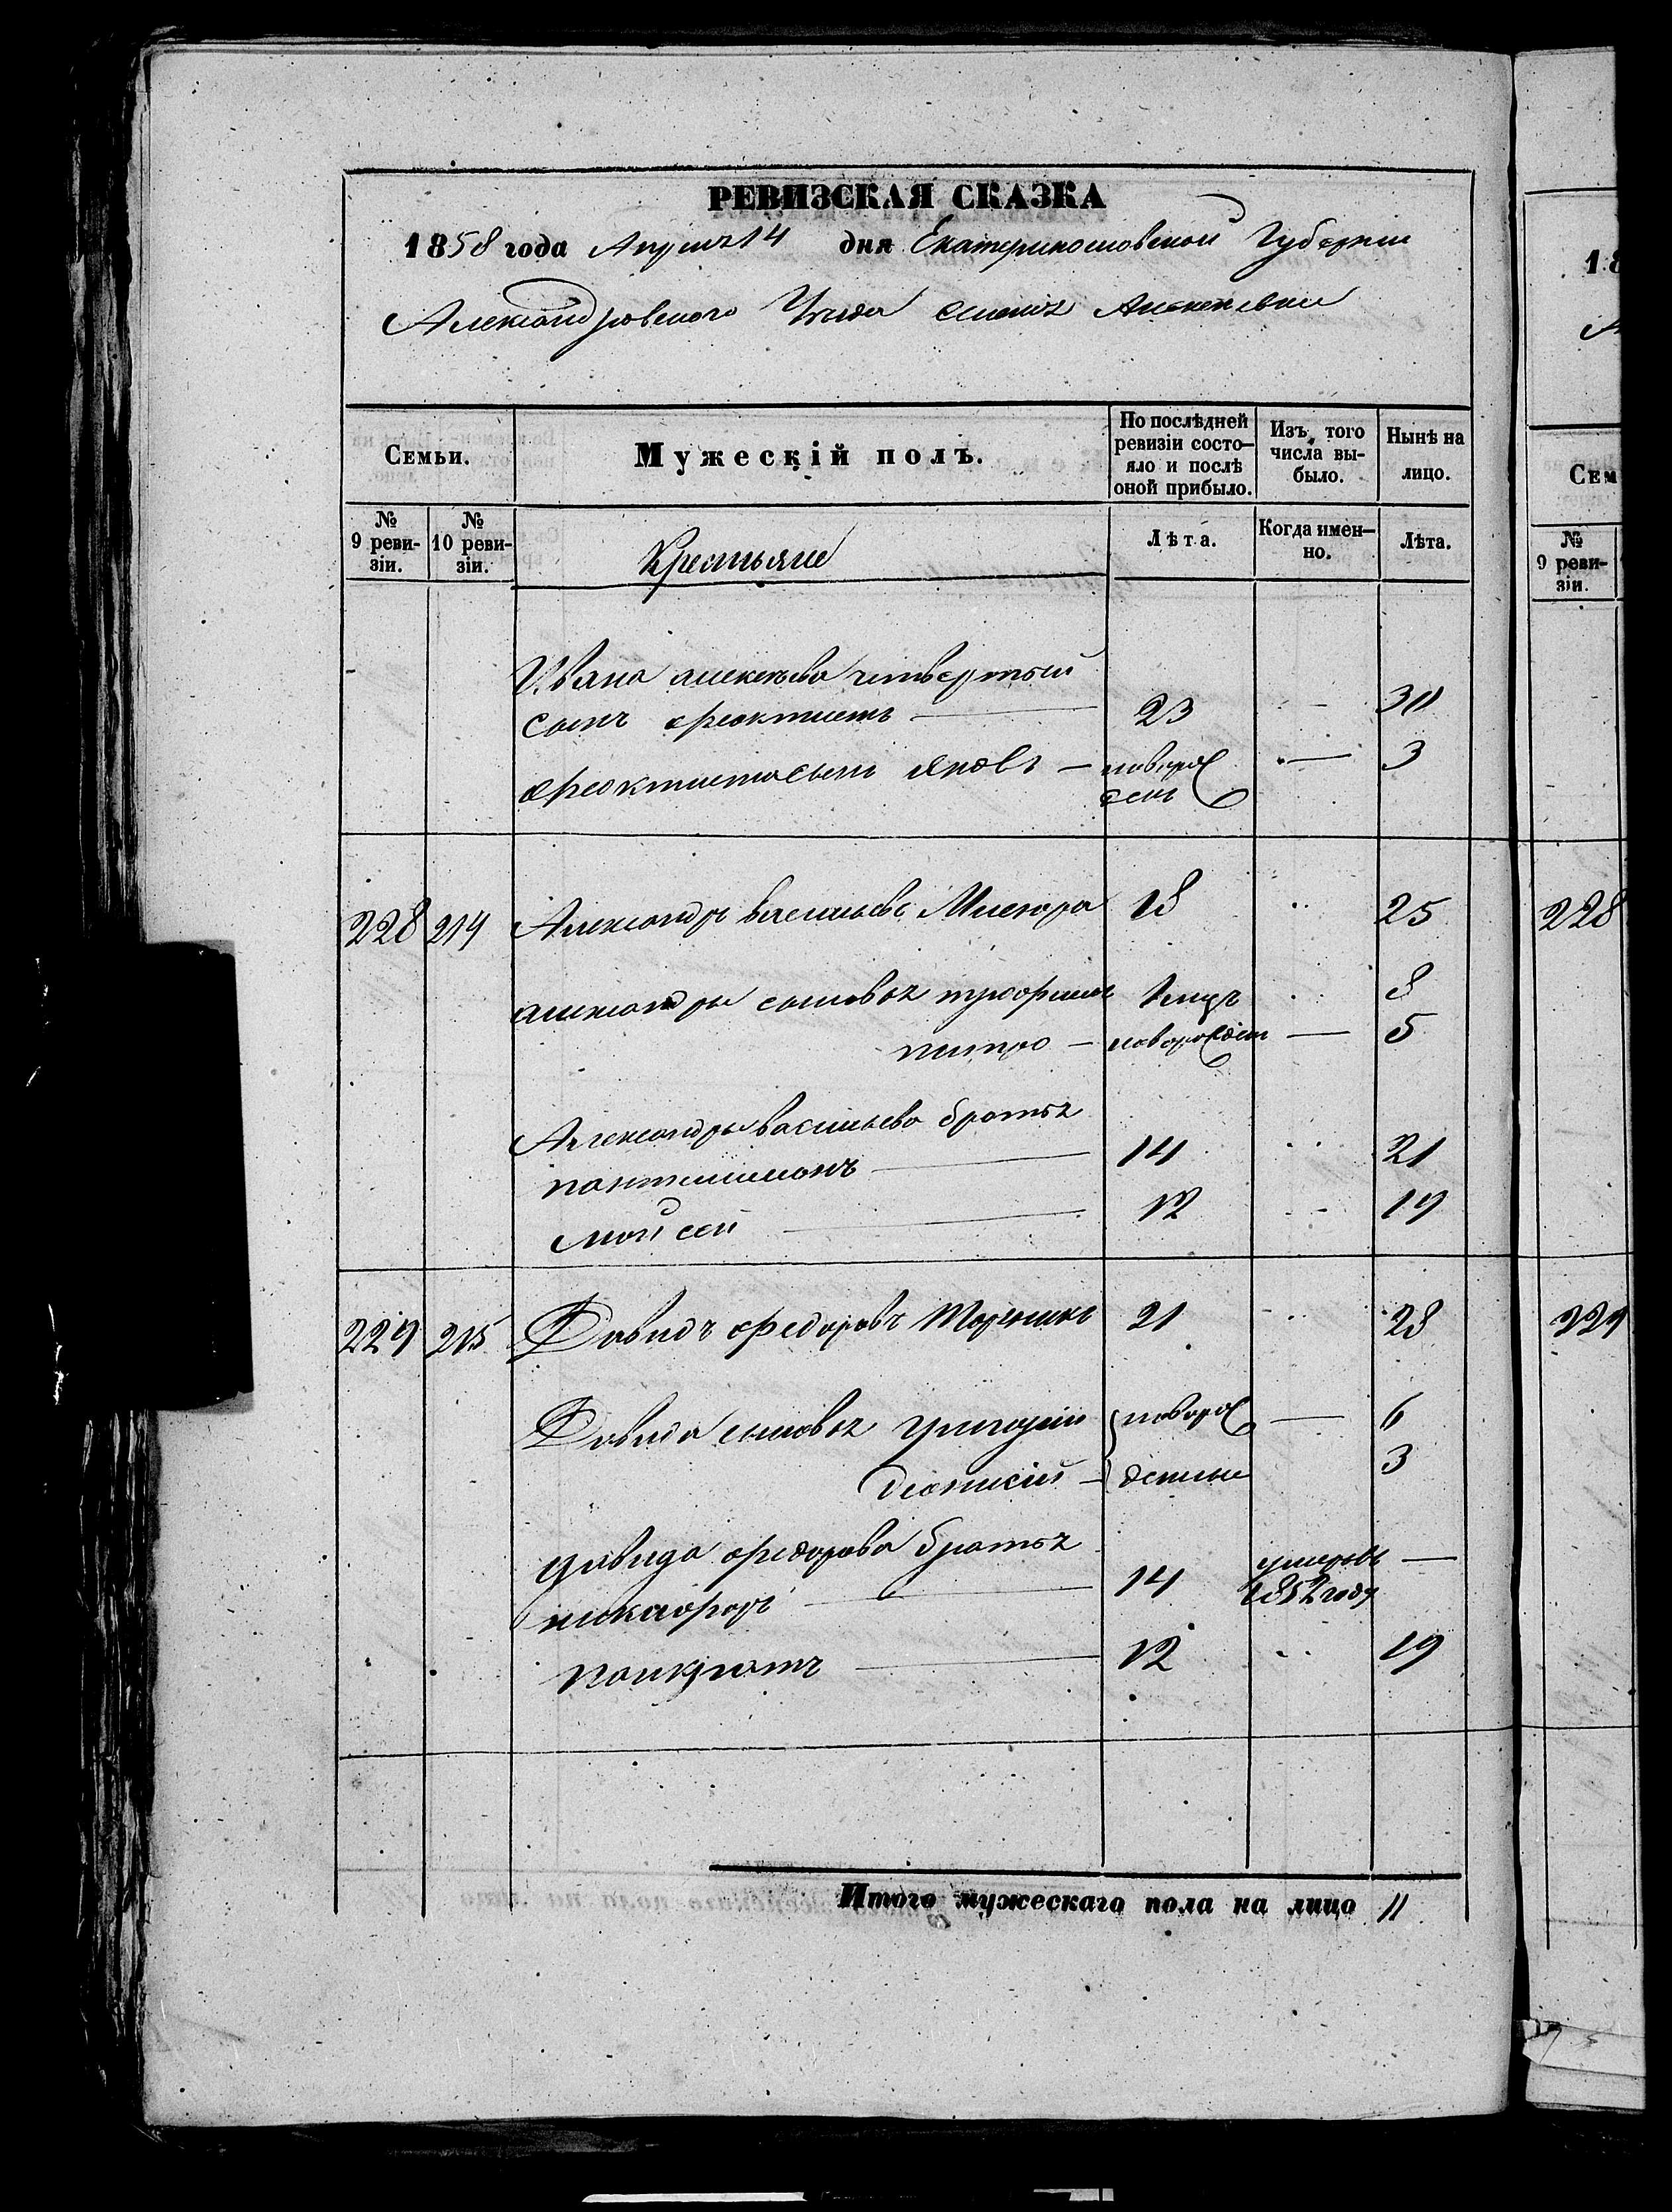 РЕВИЗСКАЯ СКАЗКА
1858 года Апреля 14 дня Екатеринославской Губернии
Александровского Уезда
Семьи.
Мужескій полъ.
По послѣдней ревизіи состо-
яло и послѣ оной прибыло.
Изъ того числа вы-
было.
Нынѣ на лицо.
№ 9 реви-
зіи.
№ 10 реви-
зіи.
Крестьяне
Лѣта.
Когда имен-
но.
Лѣта.
Ивана алексеева четвертый
сынъ феоктистъ — 23 30
феоктиста сынъ яковъ — новорож — 3
денъ
228 214 Александръ васильевъ 18 25 228
александры сыновья трофимъ 8
петро — новорожден — 5
Александры васильева братья
пантилимонъ — 14 21
моисей — 12 19
229 215 Давидъ федоровъ 21 28 229
Давида сыновья григорий новорож — 6
дионисий — денные 3
давида федорова братья
никифоръ — 14 умеръ в 1852 году —
панкратъ — 12 19
Итого мужескаго пола на лицо 11
18
Сем
№ 9 реви-
зіи.